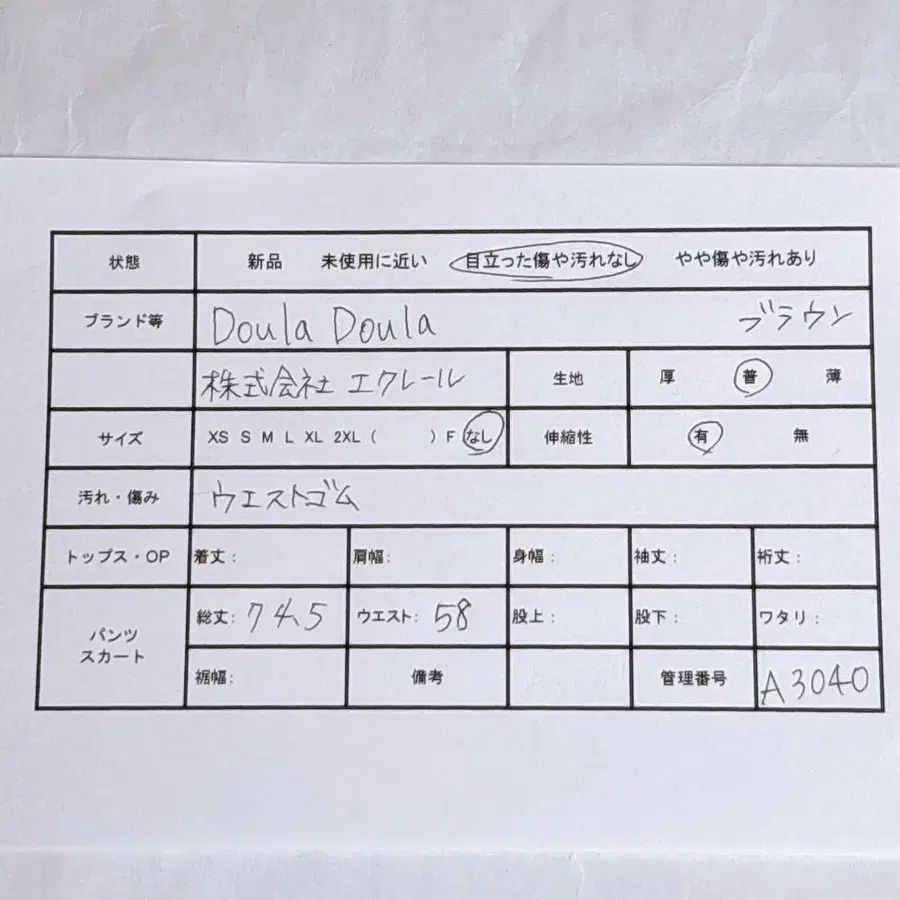 状態 新品 未使用に近い 目立った傷や汚れなし やや傷や汚れあり
ブランド等 Doula Doula ブラウン
株式会社 エクレール 生地 厚 普 薄
サイズ XS S M L XL 2XL ( ) F なし 伸縮性 有 無
汚れ・傷み ウエストゴム
トップス・OP 着丈: 肩幅: 身幅: 袖丈: 裄丈:
パンツ スカート 総丈: 74.5 ウエスト: 58 股上: 股下: ワタリ:
裾幅: 備考 管理番号 A3040